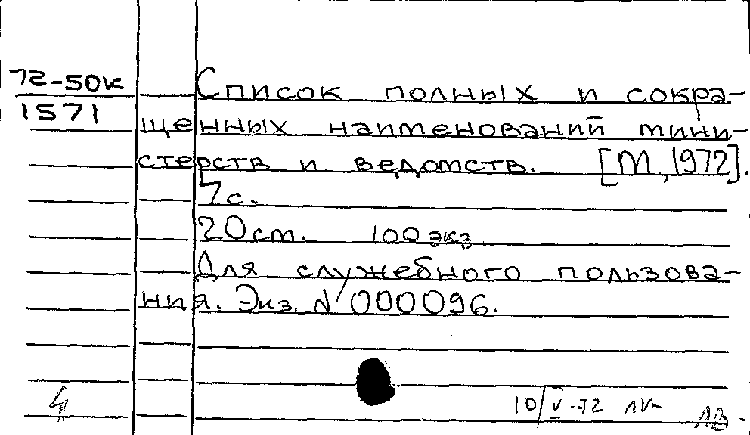 72-50к
1571
Список полных и сокра-
щенных наименований мини-
стерств и ведомств. [М, 1972].
7с.
20см. 100 экз.
Для служебного пользова-
ния. Экз. № 000096.
10/V-72